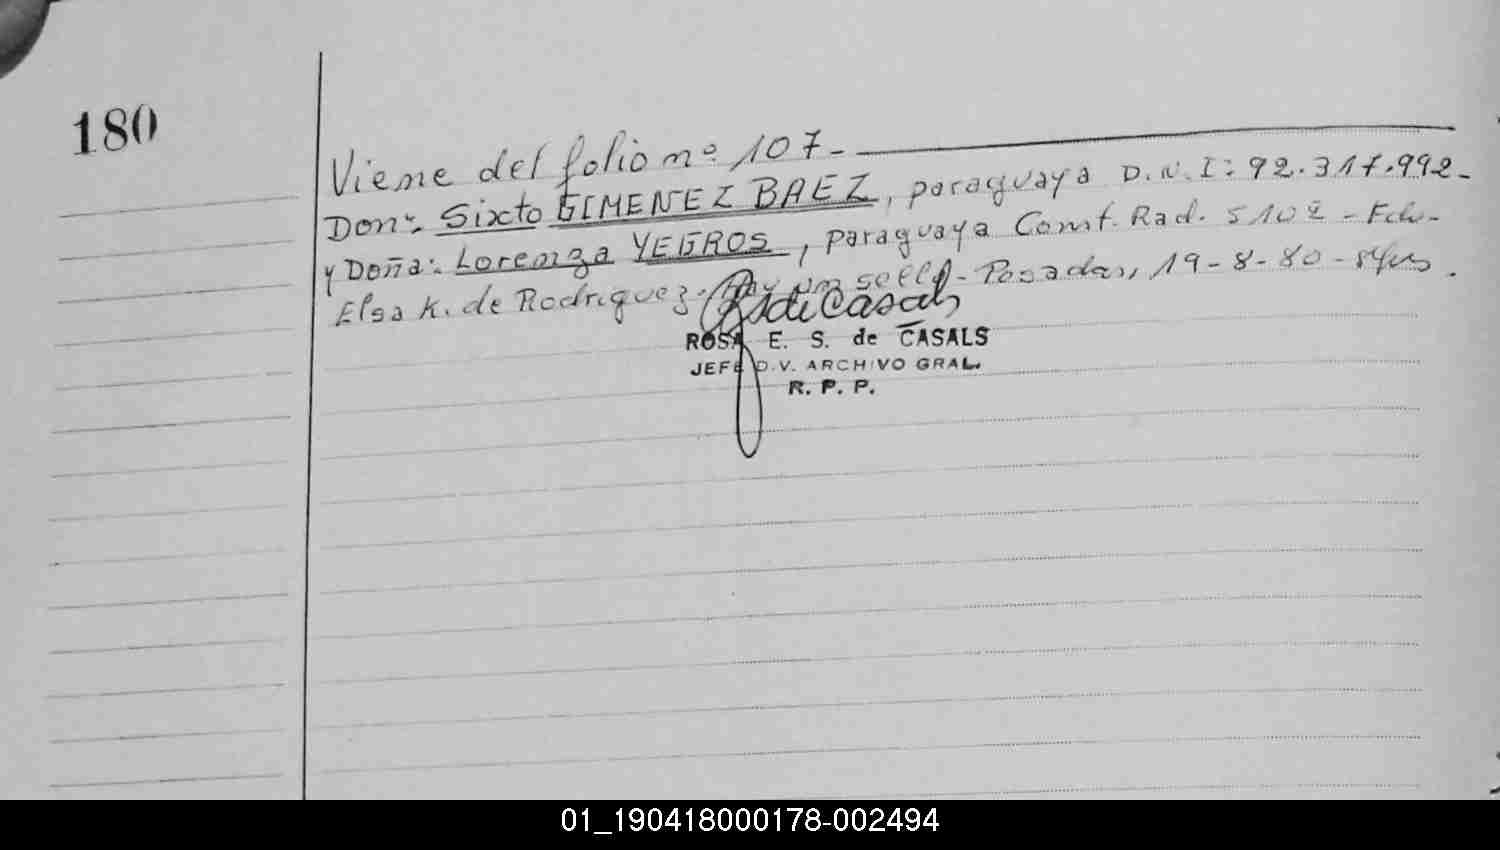 180
Viene del folio nº 107-
Don: Sixto GIMENEZ BAEZ, paraguaya D.N.I: 92.317.992-
y Doña: Lorenza YEGROS, paraguaya Const. Rad. 5102 - Fdo-
Elsa K. de Rodriguez. Hay un sello - Posadas, 19-8-80 -
ROSA E. S. de CASALS
JEFE DIV. ARCHIVO GRAL.
R. P. P.
01_190418000178-002494